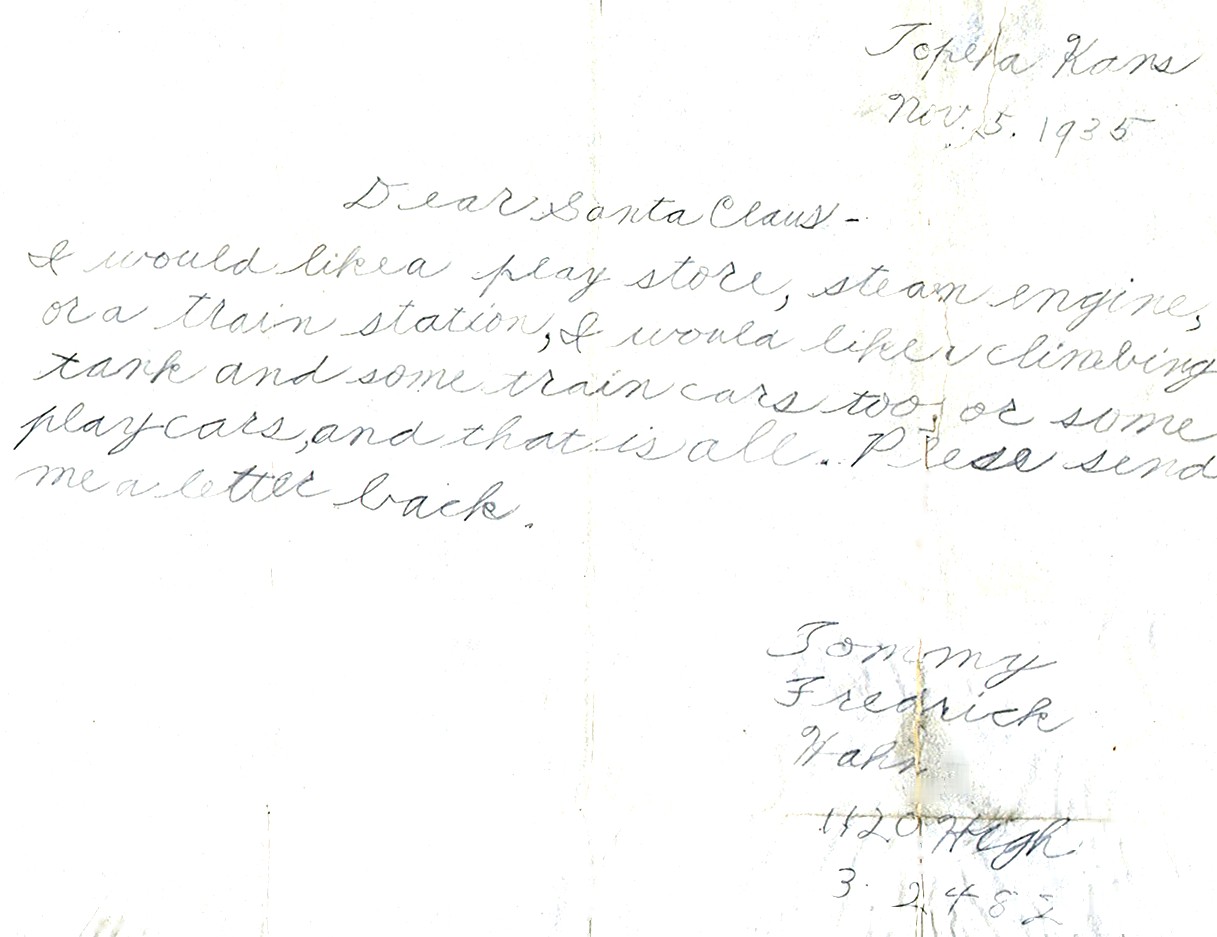 Topeka Kans
Nov. 5. 1935
Dear Santa Claus -
I would like a play store, steam engine,
or a train station, I would like a climbing
tank and some train cars too, or some
play cars, and that is all. Plese send
me a letter back.
Tommy
Fredrick
Hahn
High
3. 2482